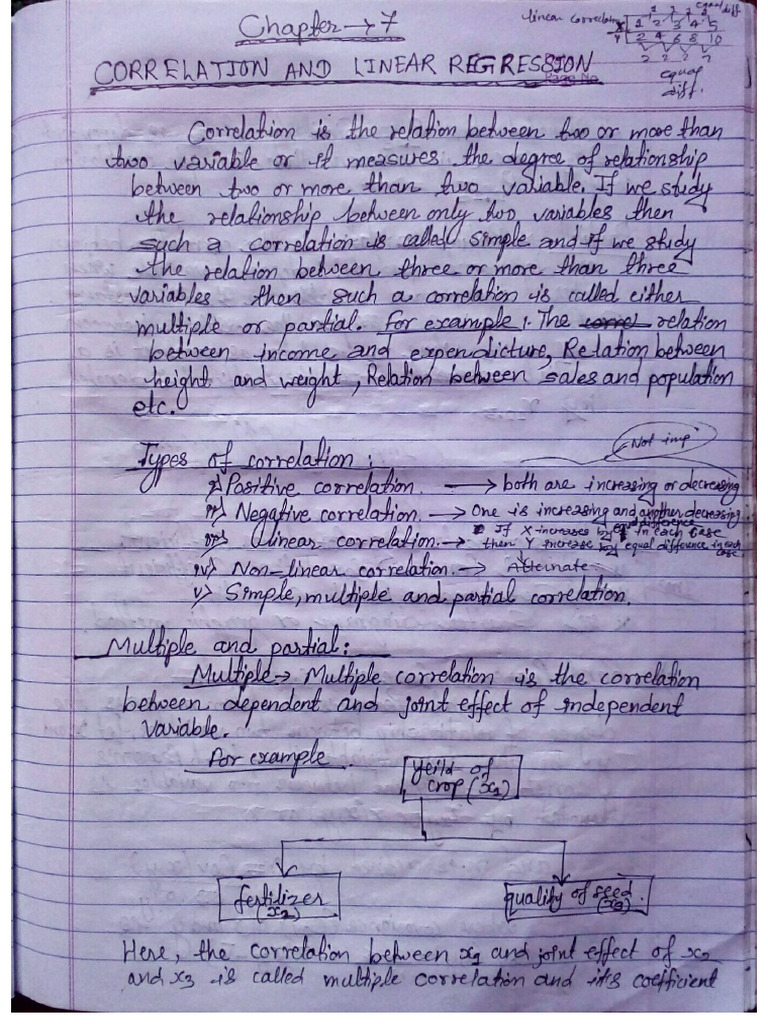 Chapter → 7
linear correlation
equal diff
X 1 2 3 4 5
Y 2 4 6 8 10
2 2 2 2
equal
diff.
CORRELATION AND LINEAR REGRESSION
Page No.
Correlation is the relation between two or more than
two variable or it measures the degree of relationship
between two or more than two variable. If we study
the relationship between only two variables then
such a correlation is called simple and if we study
the relation between three or more than three
variables then such a correlation is called either
multiple or partial. For example:. The correl relation
between income and expendicture, Relation between
height and weight, Relation between sales and population
etc.
Not imp
Types of correlation:
i> Positive correlation. → both are increasing or decreasing
ii> Negative correlation. → One is increasing and another decreasing.
iii> Linear correlation. → If X increases by equal difference in each case
then Y increase by equal difference in each case
iv> Non-linear correlation. → Alternate
v> Simple, multiple and partial correlation.
Multiple and partial:
Multiple → Multiple correlation is the correlation
between dependent and joint effect of independent
variable.
For example
yeild of
crop (x1)
fertilizer
(x2)
quality of seed.
(x3)
Here, the correlation between x1 and joint effect of x2
and x3 is called multiple correlation and its coefficient